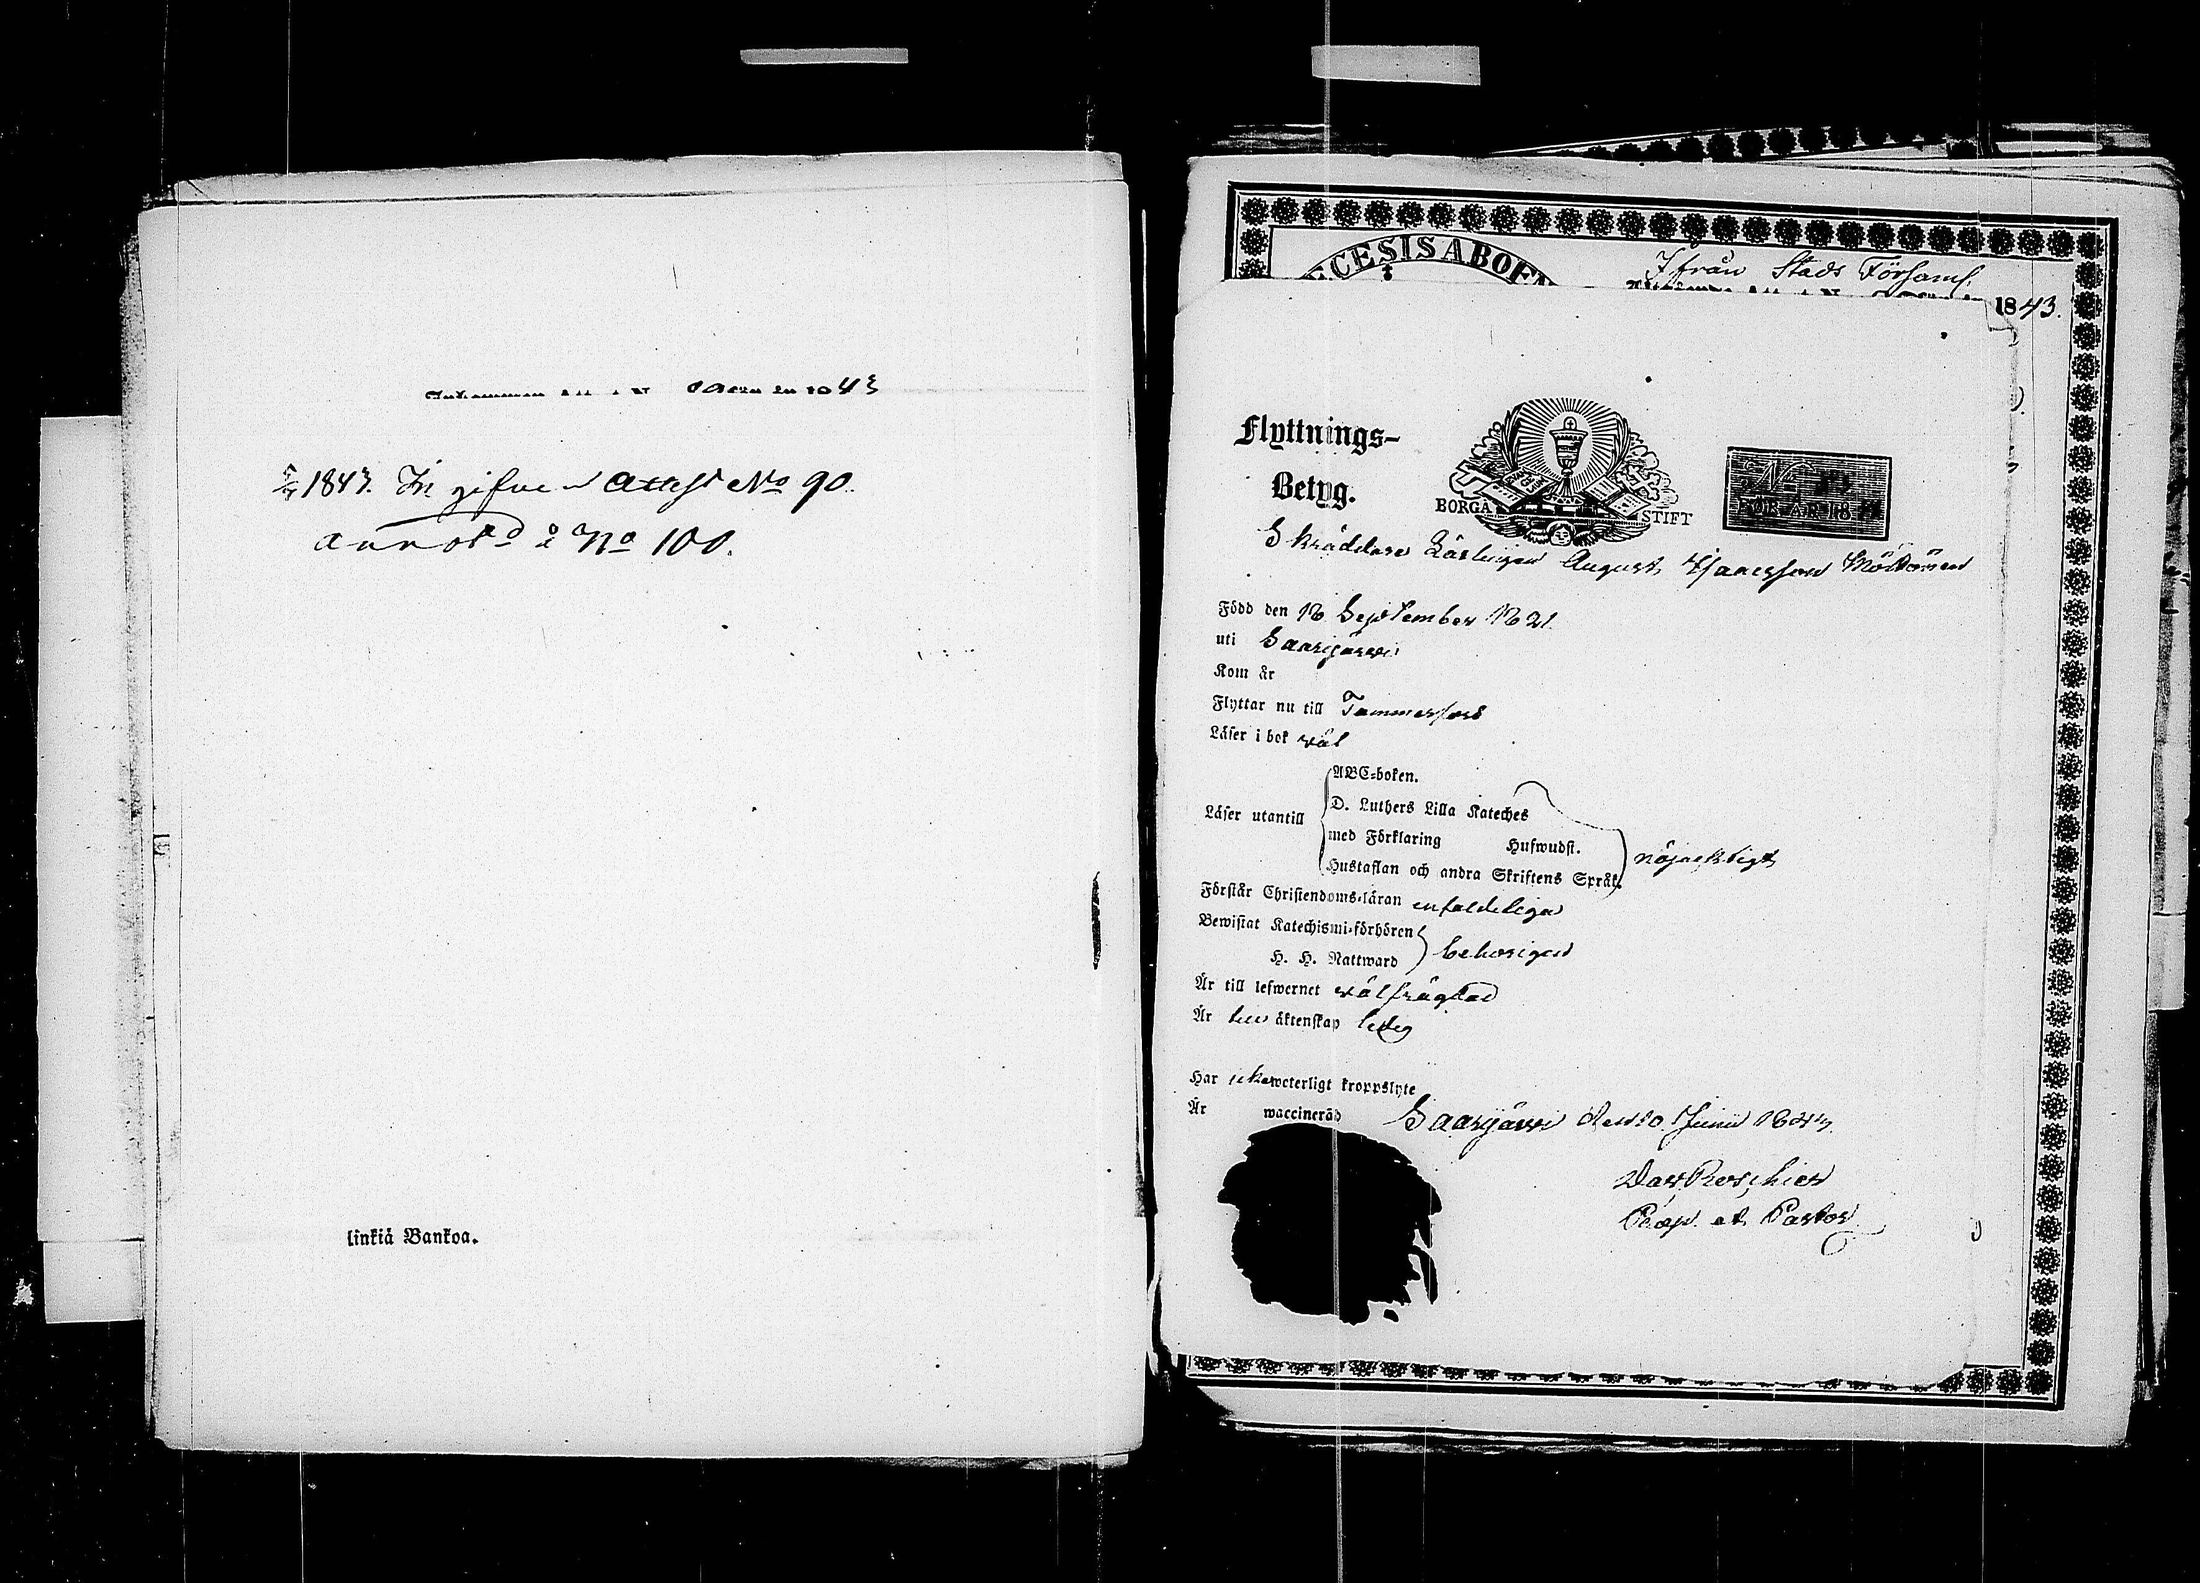 1843. Ingifven Attest No 90.
annot:d å No 100.
linkiä Bankoa.
CESIS ABOEN
Ifrån Stads Församl.
1843.
Flyttnings-
Betyg.
BORGÅ STIFT
No
FÖR ÅR 18
Skräddare Lärlingen August
Född den 18 September 1821.
uti Saarijärvi
Kom år
Flyttar nu till Tammerfors
Läser i bok väl
Läser utantill
ABC-boken.
D. Luthers Lilla Kateches
med Förklaring Hufwudst.
Hustaflan och andra Skriftens Språk.
nöjaktigt
Förstår Christendoms-läran enfaldeligen
Bewistat Katechismi-förhören
H. H. Nattward
behörigen
Är till lefwernet välfrägdad
Är till äktenskap ledig
Har icke weterligt kroppslyte
Är waccinerad
Saarijärvi den 10 Junii 1843.
Dav. Roschier
Præp. et Pastor